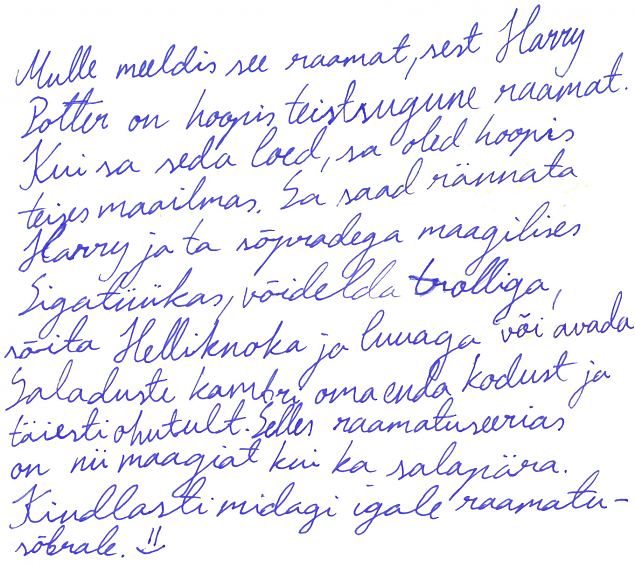 Mulle meeldis see raamat, sest Harry
Potter on hoopis teistsugune raamat.
Kui sa seda loed, sa oled hoopis
teises maailmas. Sa saad rännata
Harry ja ta sõpradega maagilises
Sigatüükas, võidelda trolliga,
sõita Helliknoka ja luuaga või avada
Saladuste kambri oma enda kodust ja
täiesti ohutult. Selles raamatuseerias
on nii maagiat kui ka salapära.
Kindlasti midagi igale raamatu-
sõbrale. :)